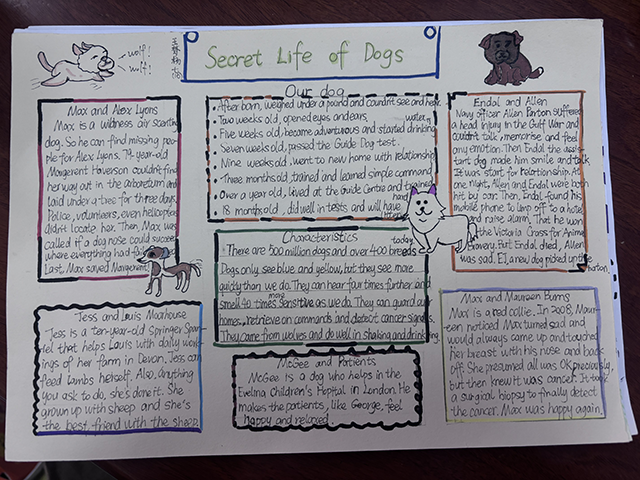 Secret Life of Dogs
wolf!
wolf!
Max and Alex Lyons
Max is a wildness air scenting
dog. So he can find missing peo-
ple for Alex Lyons. 74-year-old
Margerent Haverson couldn't find
her way out in the arboretum and
laid under a tree for three days.
Police, volunteers, even helicopter
didn't locate her. Then, Max was
called if a dog nose could succeed
where everything had
Last, Max saved Margerent
Our dog
After barn, weighed under a pound and couldn't see and hear.
Two weeks old, opened eyes and ears.
Five weeks old, became adventurous and started drinking water.
Seven weeks old, passed the Guide Dog test.
Nine weeks old, went to new home with relationship
Three months old, trained and learned simple command
Over a year old, lived at the Guide Centre and trained
18 months old, did well in tests and will have
Endal and Allen
Navy officer Allen Parton suffered
a head injury in the Gulf War and
couldn't talk, memorise and feel
any emotion. Then Endal the assis-
tant dog made him smile and talk.
It was start for relationship. At
one night, Allen and Endal were both
hit by car. Then, Endal found his
mobile phone to
and raise alarm. That he won
the Victoria Cross for Animal
Bravery. But Endal died, Allen
was sad. EJ, a new dog picked up the
Parton.
Characteristics
There are 500 million dogs and over 400 breeds today.
Dogs only see blue and yellow, but they see more
quickly than we do. They can hear four times further and
smell 40 times more sensitive as we do. They can guard our
homes, retrieve on commands and detect cancer signals.
They came from wolves and do well in shaking and drinking.
Jess and Louis Moorhouse
Jess is a ten-year-old Springer Span-
iel that helps Louis with daily work-
ings of her farm in Devon. Jess can
feed lambs herself. Also, anything
you ask to do, she's done it. She
grown up with sheep and she's
the best friend with the sheep.
McGee and Patients
McGee is a dog who helps in the
Evelina Children's Hopital in London. He
makes the patients, like George, feel
happy and relaxed.
Max and Maureen Burns
Max is a red collie. In 2008, Maur-
een noticed Max turned sad and
would always come up and touched
her breast with his nose and back
off. She presumed all was OK previously,
but then knew it was cancer. It took
a surgical biopsy to finally detect
the cancer. Max was happy again.